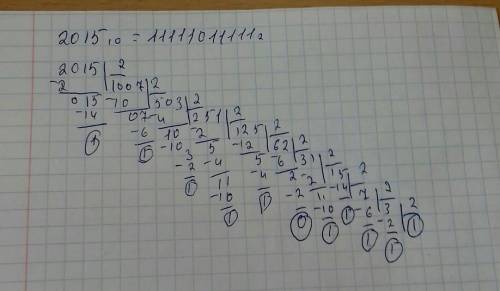 2015₁₀ = 11111011111₂
2015 | 2
-2 1007 | 2
015 -10 503 | 2
-14 07 -4 251 | 2
1 -6 10 -2 125 | 2
1 -10 5 -12 62 | 2
3 -4 5 -6 31 | 2
-2 11 -4 2 -2 15 | 2
1 -10 1 -2 11 -14 7 | 2
1 0 -10 1 -6 3 | 2
1 1 -2 1
1